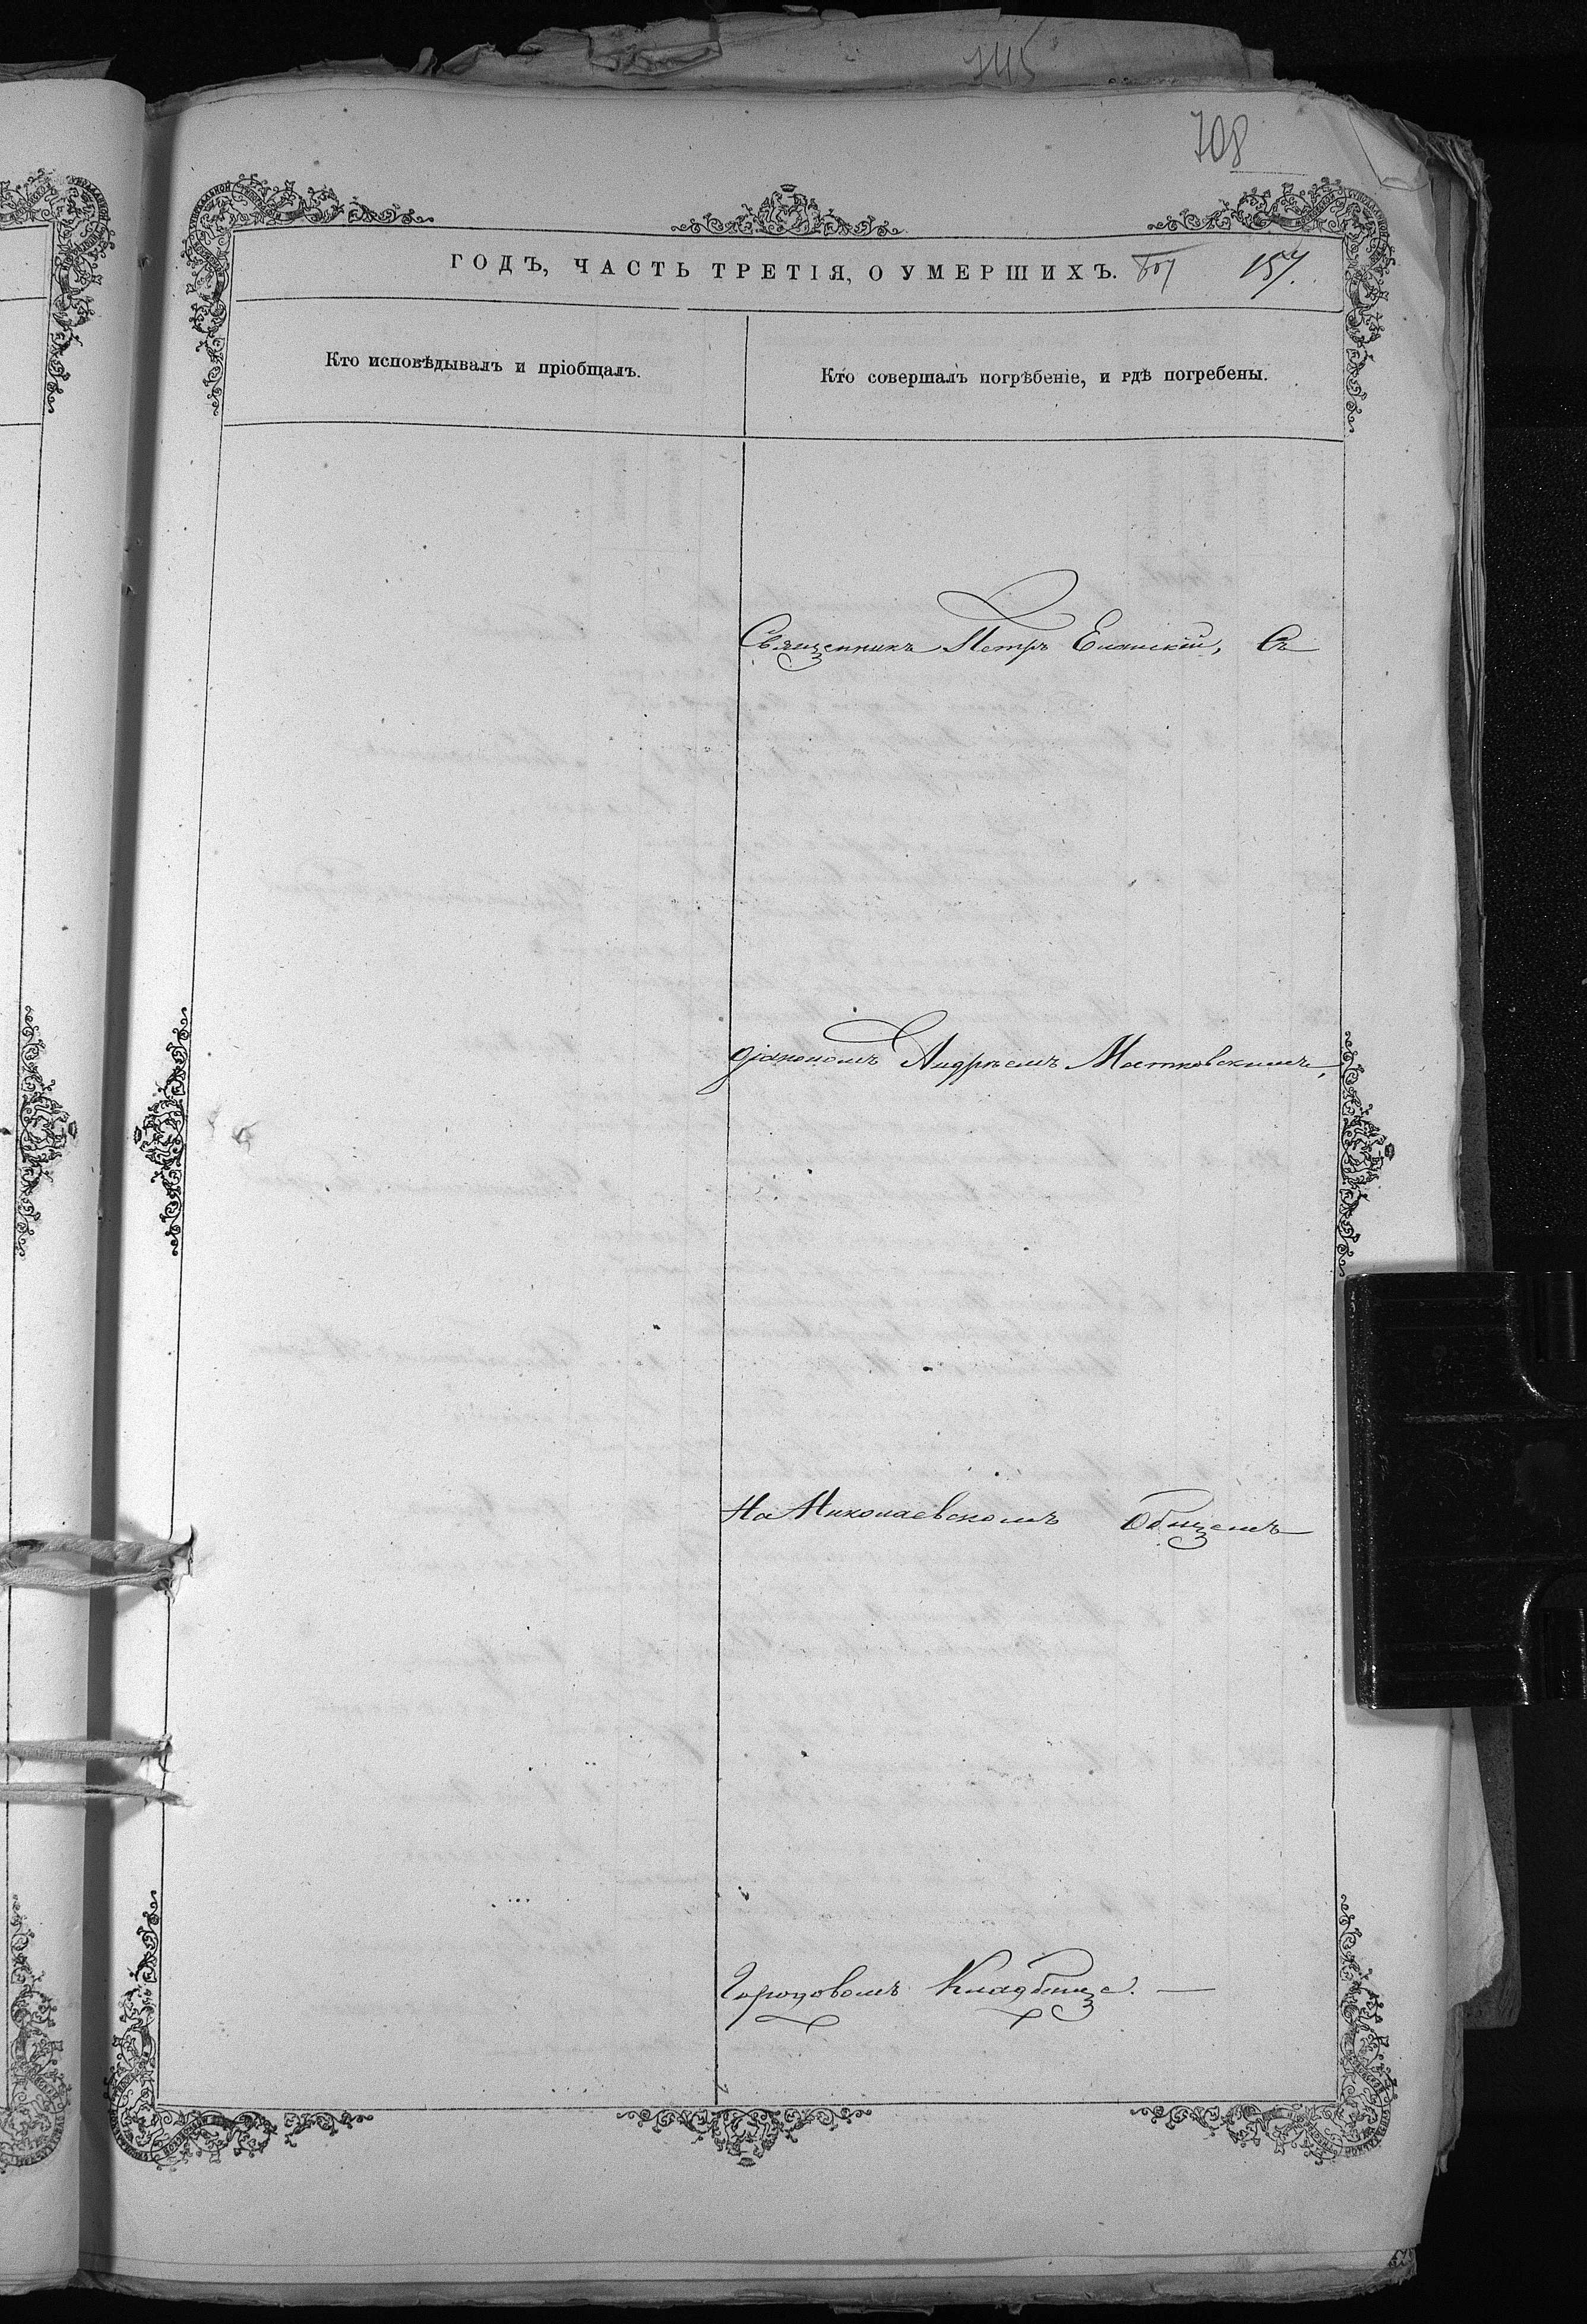 708
ГОДЪ, ЧАСТЬ ТРЕТІЯ, О УМЕРШИХЪ. 157.
Кто исповѣдывалъ и пріобщалъ.
Кто совершалъ погрѣбеніе, и гдѣ погребены.
Священникъ Петръ Еланскій, Съ
діакономъ Андреемъ Матковскимъ,
На Николаевскомъ Общемъ
Городовомъ Кладбище. —